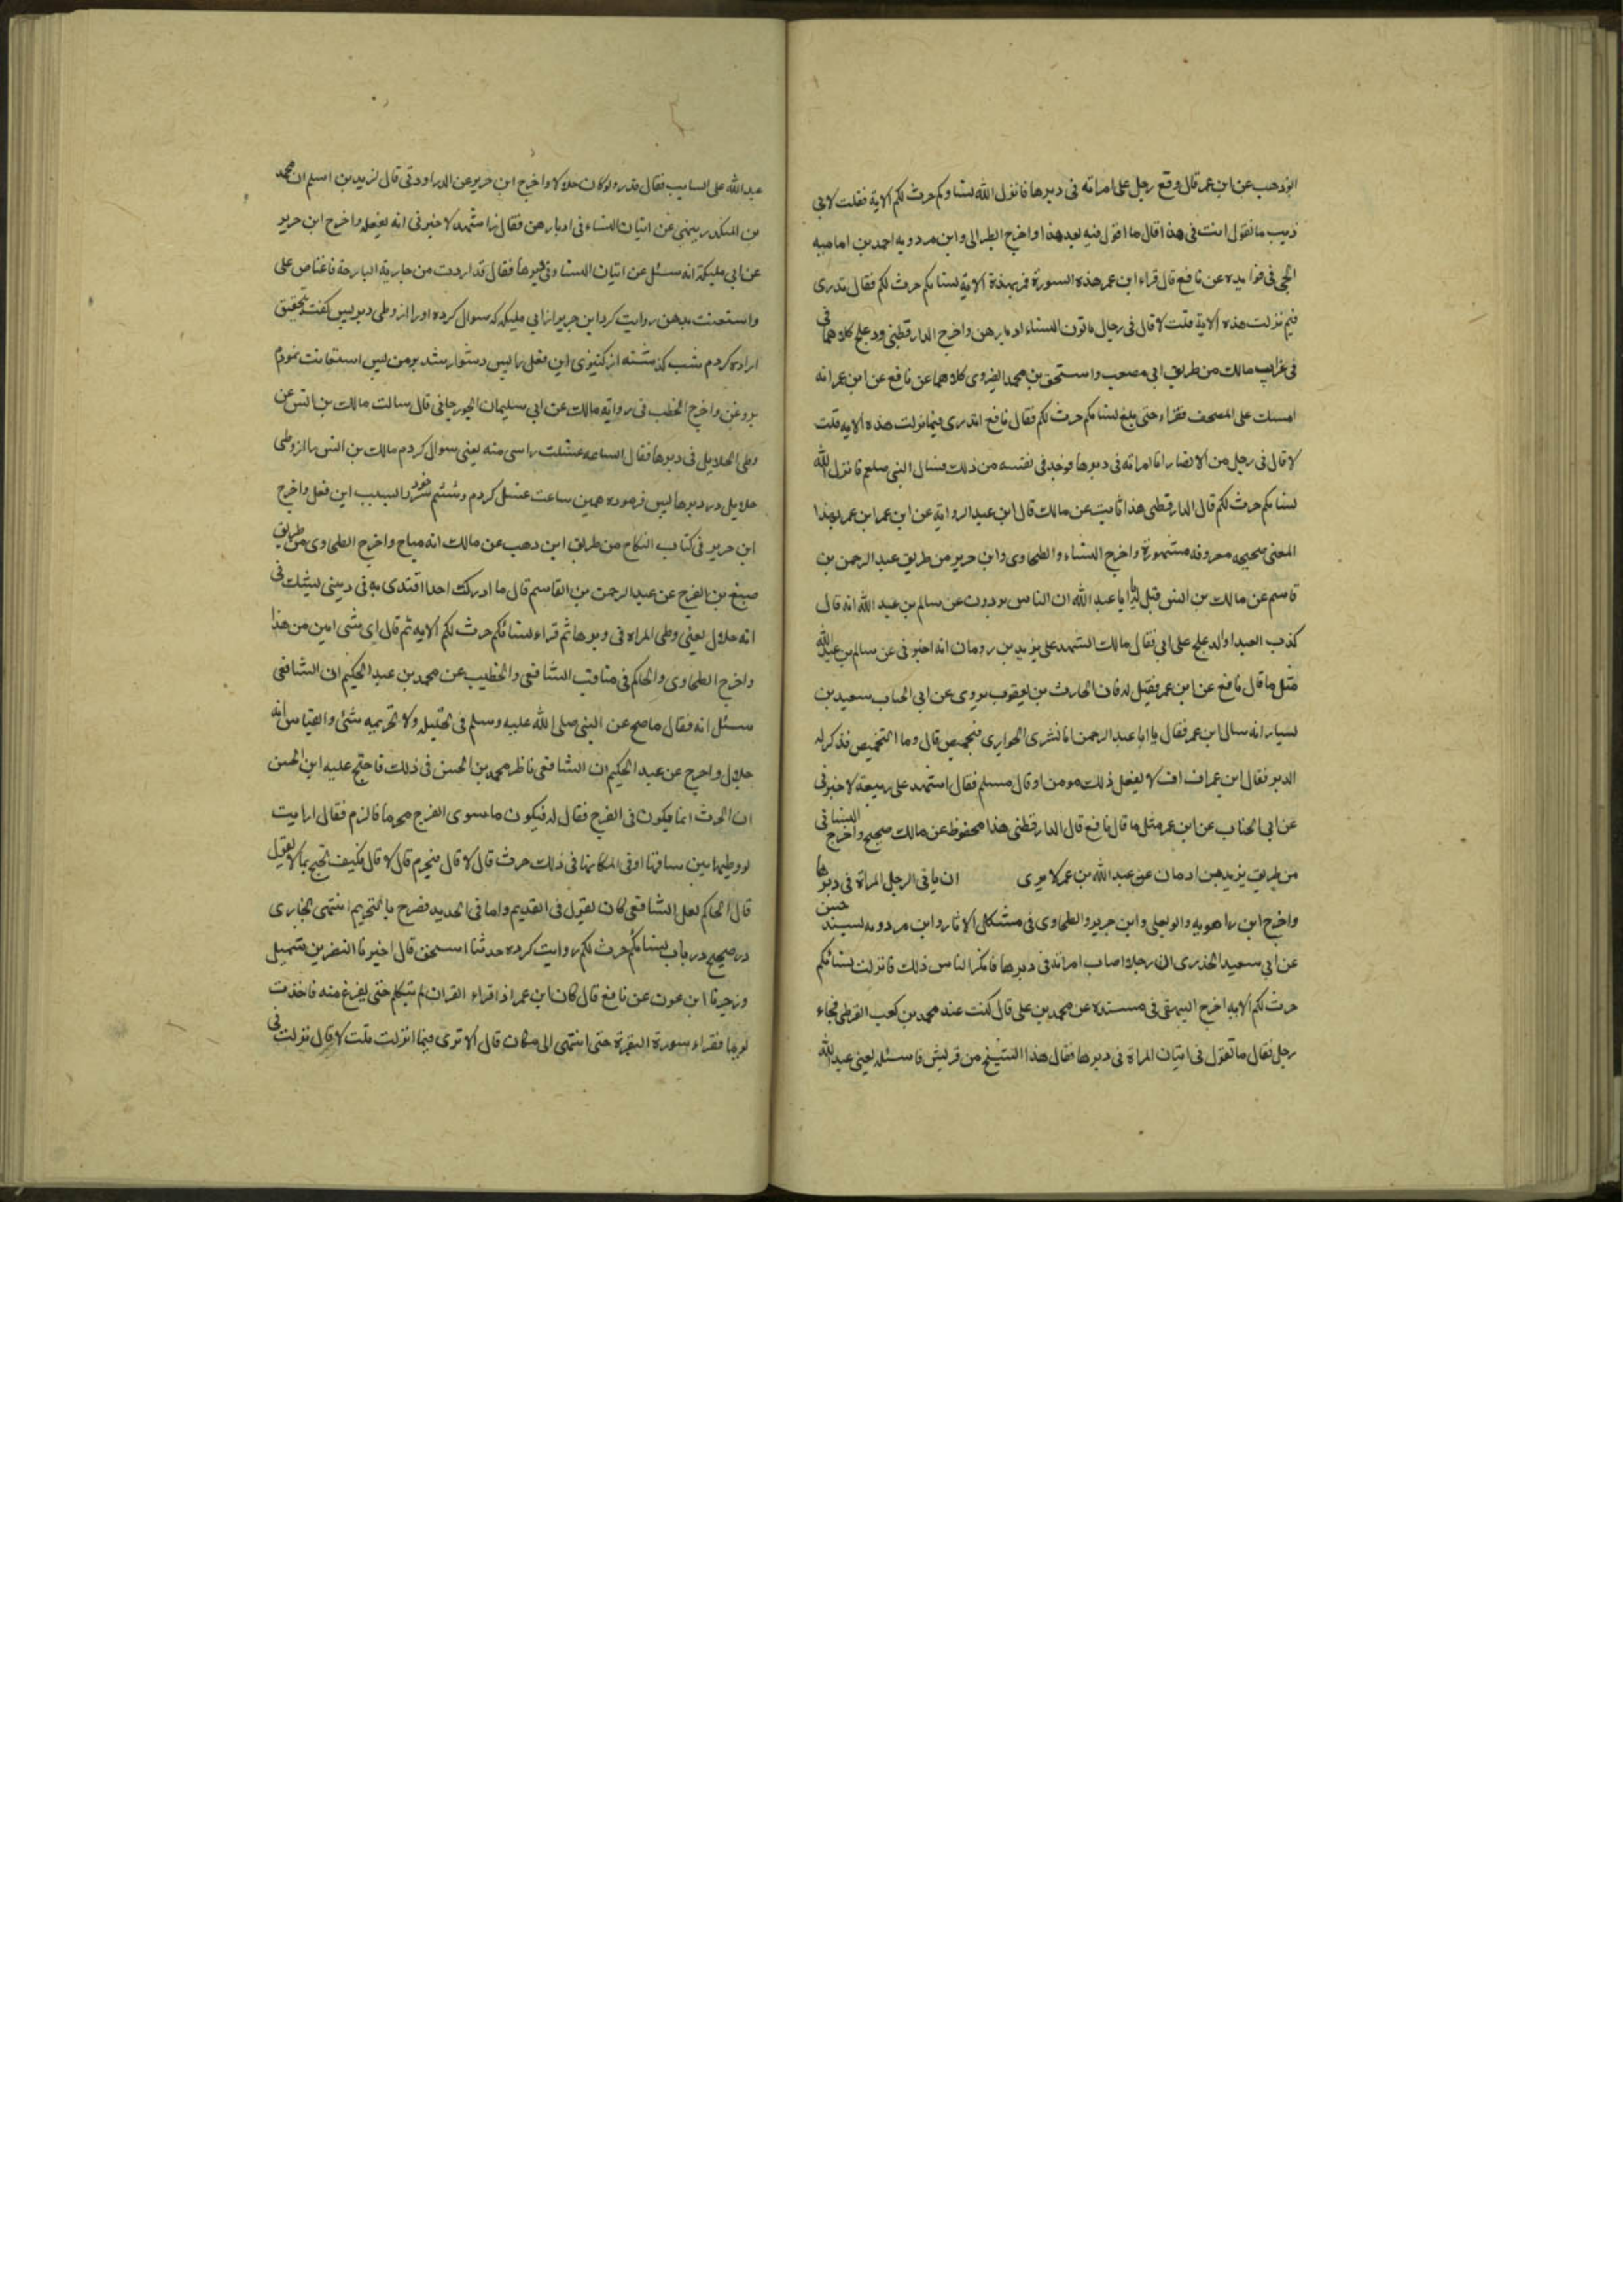 ابو ذهب عن ابن عمر قال وقع رجل علی امراته فی دبرها فانزل الله نساوکم حرث لکم الایة فقلت لابی
ذیب ما تقول انت فی هذا قال ما اقول فیه بعد هذا واخرج الطبرانی وابن مردویه احمد بن اسامه
عن نافع قال قراء ابن عمر هذه السورة فمر بهذة الایة نساءکم حرث لکم فقال تدری
فیم نزلت هذه الایة قلت لا قال فی رجال یاتون النساء ادبارهن واخرج الدارقطنی ودعلج کلاهما فی
فی غرایب مالک من طریق ابی مصعب واسحق بن محمد الفروی کلاهما عن نافع عن ابن عمر انه
امسک علی المصحف فقراء حتی بلغ نساءکم حرث لکم فقال نافع اتدری فیما نزلت هذه الایه قلت
لا قال فی رجل من الانصار اتا امراته فی دبرها فوجد فی نفسه من ذلک فسال النبی صلعم فانزل الله
نساءکم حرث لکم قال الدارقطنی هذا ثابت عن مالک قال ابن عبد الروایة عن ابن عمر ابن عمر بهذا
المعنی صحیحه معروفه مشهورة واخرج النساء والطحاوی وابن جریر من طریق عبد الرحمن بن
قاسم عن مالک بن انس قیل له یا ابا عبد الله ان الناس یروون عن سالم بن عبد الله انه قال
کذب العبد او العلج علی ابی فقال مالک اشهد علی یزید بن رومان انه اخبرنی عن سالم بن عبد الله
مثل ما قال نافع عن ابن عمر فقیل له فان الحارث بن یعقوب یروی عن ابی الحباب سعید بن
یسار انه سال ابن عمر فقال یا ابا عبد الرحمن انا نشری الجواری فنحمیص قال وما التحمیص فذکر له
الدبر فقال ابن عمر اف اف لا یفعل ذلک مومن او قال مسلم فقال اشهد علی ربیعة لاخبرنی
عن ابی الحباب عن ابن عمر مثل ما قال نافع قال الدارقطنی هذا محفوظ عن مالک صحیح واخرج النسائی
من طریق یزید بن رومان عن عبد الله بن عمر لا یری ان یاتی الرجل المراة فی دبرها
واخرج ابن راهویه وابو یعلی وابن جریر والطحاوی فی مشکل الاثار وابن مردویه بسند حسن
عن ابی سعید الخدری ان رجلا اصاب امراته فی دبرها فانکر الناس ذلک فانزلت نسائکم
حرث لکم الایه اخرج البیهقی فی مسنده عن محمد بن علی قال کنت عند محمد بن کعب القرظی فجاء
رجل فقال ما تقول فی اتیان المراة فی دبرها فقال هذا الشیخ من قریش فاسئله یعنی عبد الله
عبد الله علی السایب فقال قذر ولو کان حلالا واخرج ابن جریر عن الدراوردی قال لزید بن اسلم ان محمد
بن المنکدر ینهی عن اتیان النساء فی ادبارهن فقال زید اشهد لاخبرنی انه یفعله واخرج ابن جریر
عن ابی ملیکة انه سئل عن اتیان النساء فی دبرها فقال قد اردت من جاریة البارحة فاعتاص علی
واستعنت بدهن روایت کرد ابن جریر از ابی ملیکه که سوال کرده او را از وطی دبر پس گفت بتحقیق
اراده کردم شب گذشته از کنیزی این فعل را پس دشوار شد بر من پس استعانت نمودم
بروغن واخرج الخطیب فی روایة مالک عن ابی سلیمان الجورجانی قال سالت مالک بن انس عن
وطی الحلایل فی دبرها فقال الساعه غسلت راسی منه یعنی سوال کردم مالک بن انس را از وطی
حلایل در دبرها پس فرموده همین ساعت غسل کردم وشستم سر خود را بسبب این فعل واخرج
ابن جریر فی کتاب النکاح من طریق ابن وهب عن مالک انه مباح واخرج الطحاوی من طریق
صبغ بن الفرج عن عبد الرحمن بن القاسم قال ما ادرکت احدا اقتدی به فی دینی یشک فی
انه حلال یعنی وطی المراه فی دبرها ثم قراء نسائکم حرث لکم الایه ثم قال ای شی ابین من هذا
واخرج الطحاوی والحاکم فی مناقب الشافعی والخطیب عن محمد بن عبد الحکیم ان الشافعی
سئل انه فقال ما صح عن النبی صلی الله علیه وسلم فی تحلیله ولا تحریمه شئ والقیاس انه
حلال واخرج عن عبد الحکیم ان الشافعی ناظر محمد بن الحسن فی ذلک فاحتج علیه ابن الحسن
ان الحرث انما یکون فی الفرج فقال له فیکون ما سوی الفرج محرما فالزم فقال ارایت
لو وطیها بین ساقیها او فی اعکانها فی ذلک حرث قال لا قال فیحرم قال لا قال فکیف تحتج بما لا تقول
قال الحاکم لعل الشافعی کان یقول فی القدیم واما فی الجدید فصرح بالتحریم انتهی بخاری
در صحیح در باب نساءکم حرث لکم روایت کرده حدثنا اسحق قال اخبرنا النضر بن شمیل
ابن عون عن نافع قال کان ابن عمر اذا قراء القران لم یتکلم حتی یفرغ منه فاخذت
یوما فقراء سورة البقرة حتی انتهی الی مکان قال الا تری فیما انزلت قلت لا قال نزلت فی